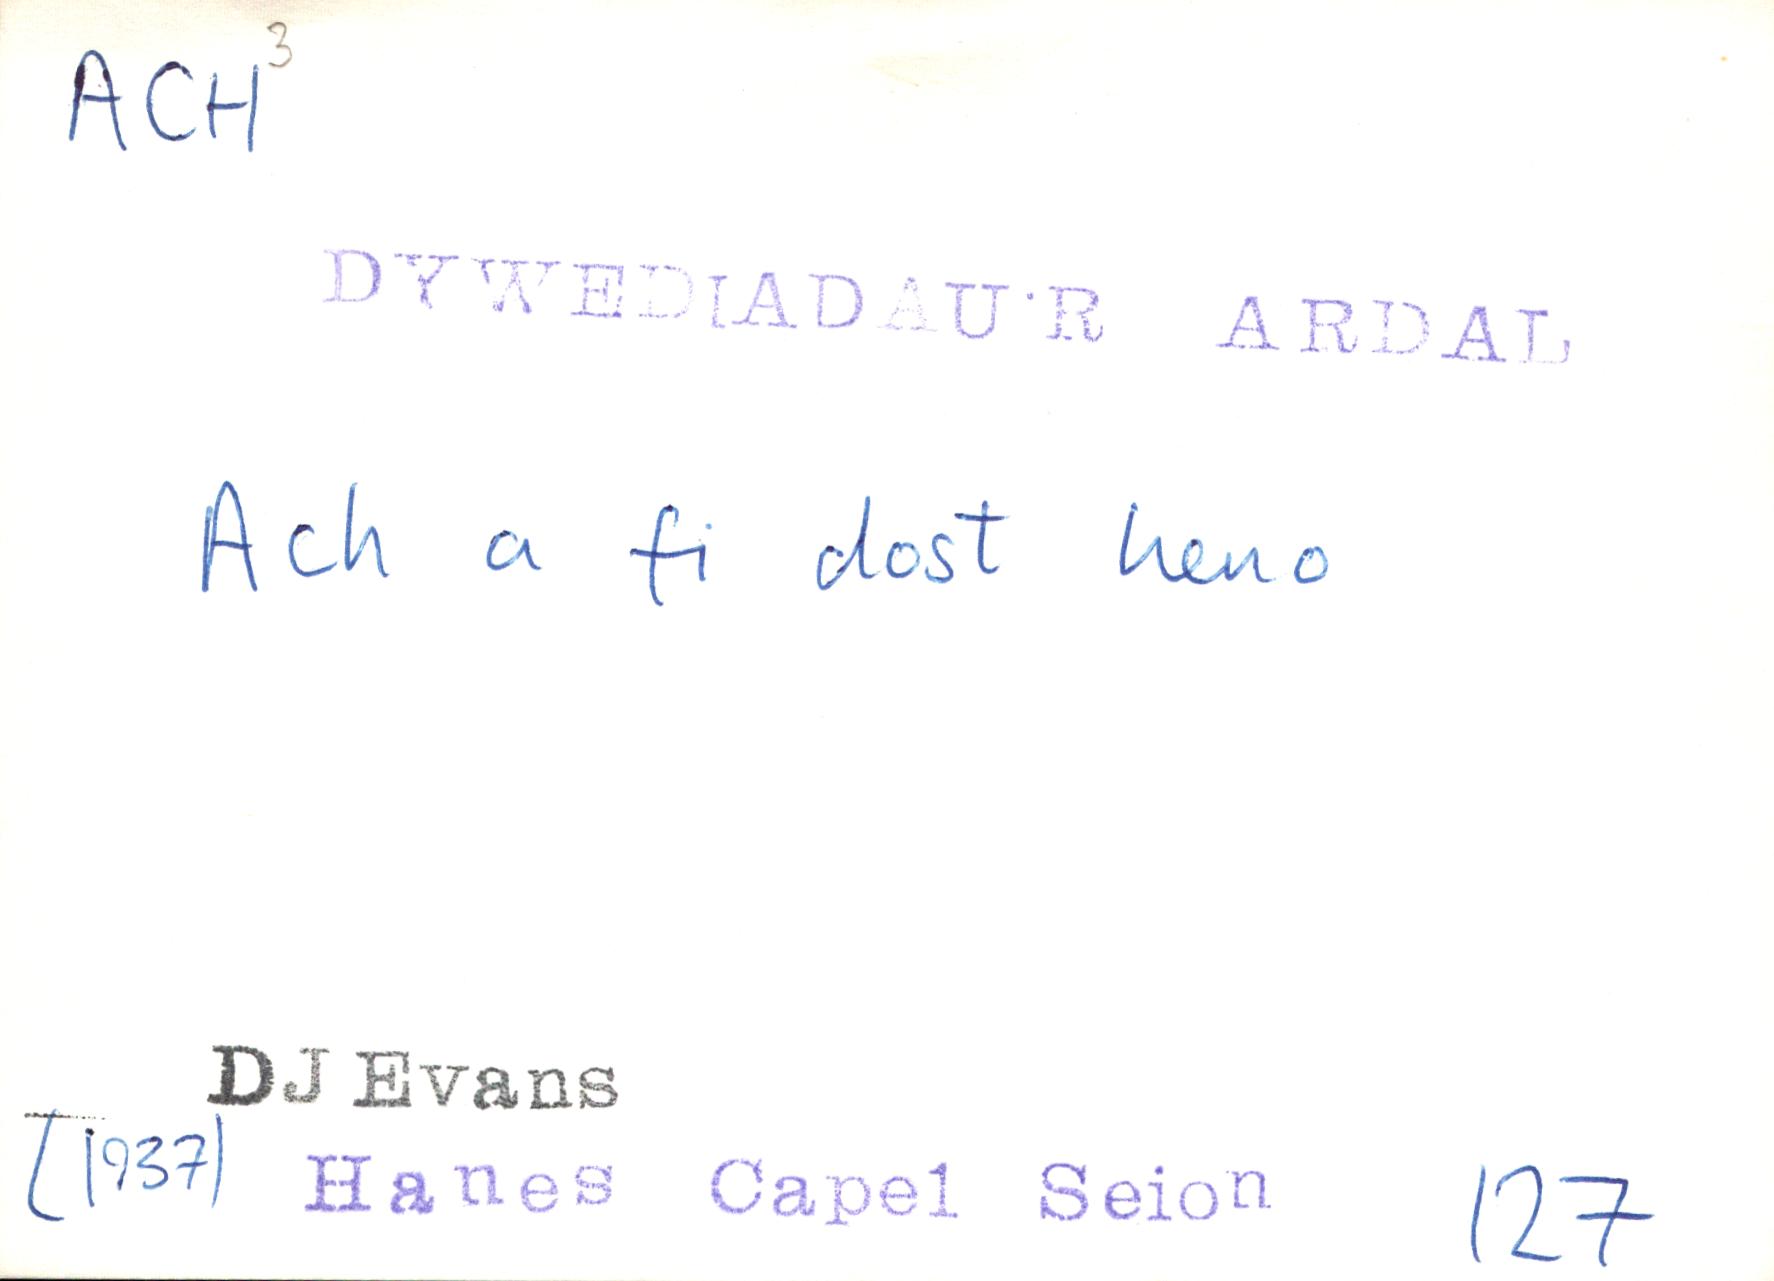 ACH³
DYWEDIADAU'R ARDAL
Ach a fi dost heno
DJ Evans
[1937] Hanes Capel Seion 127